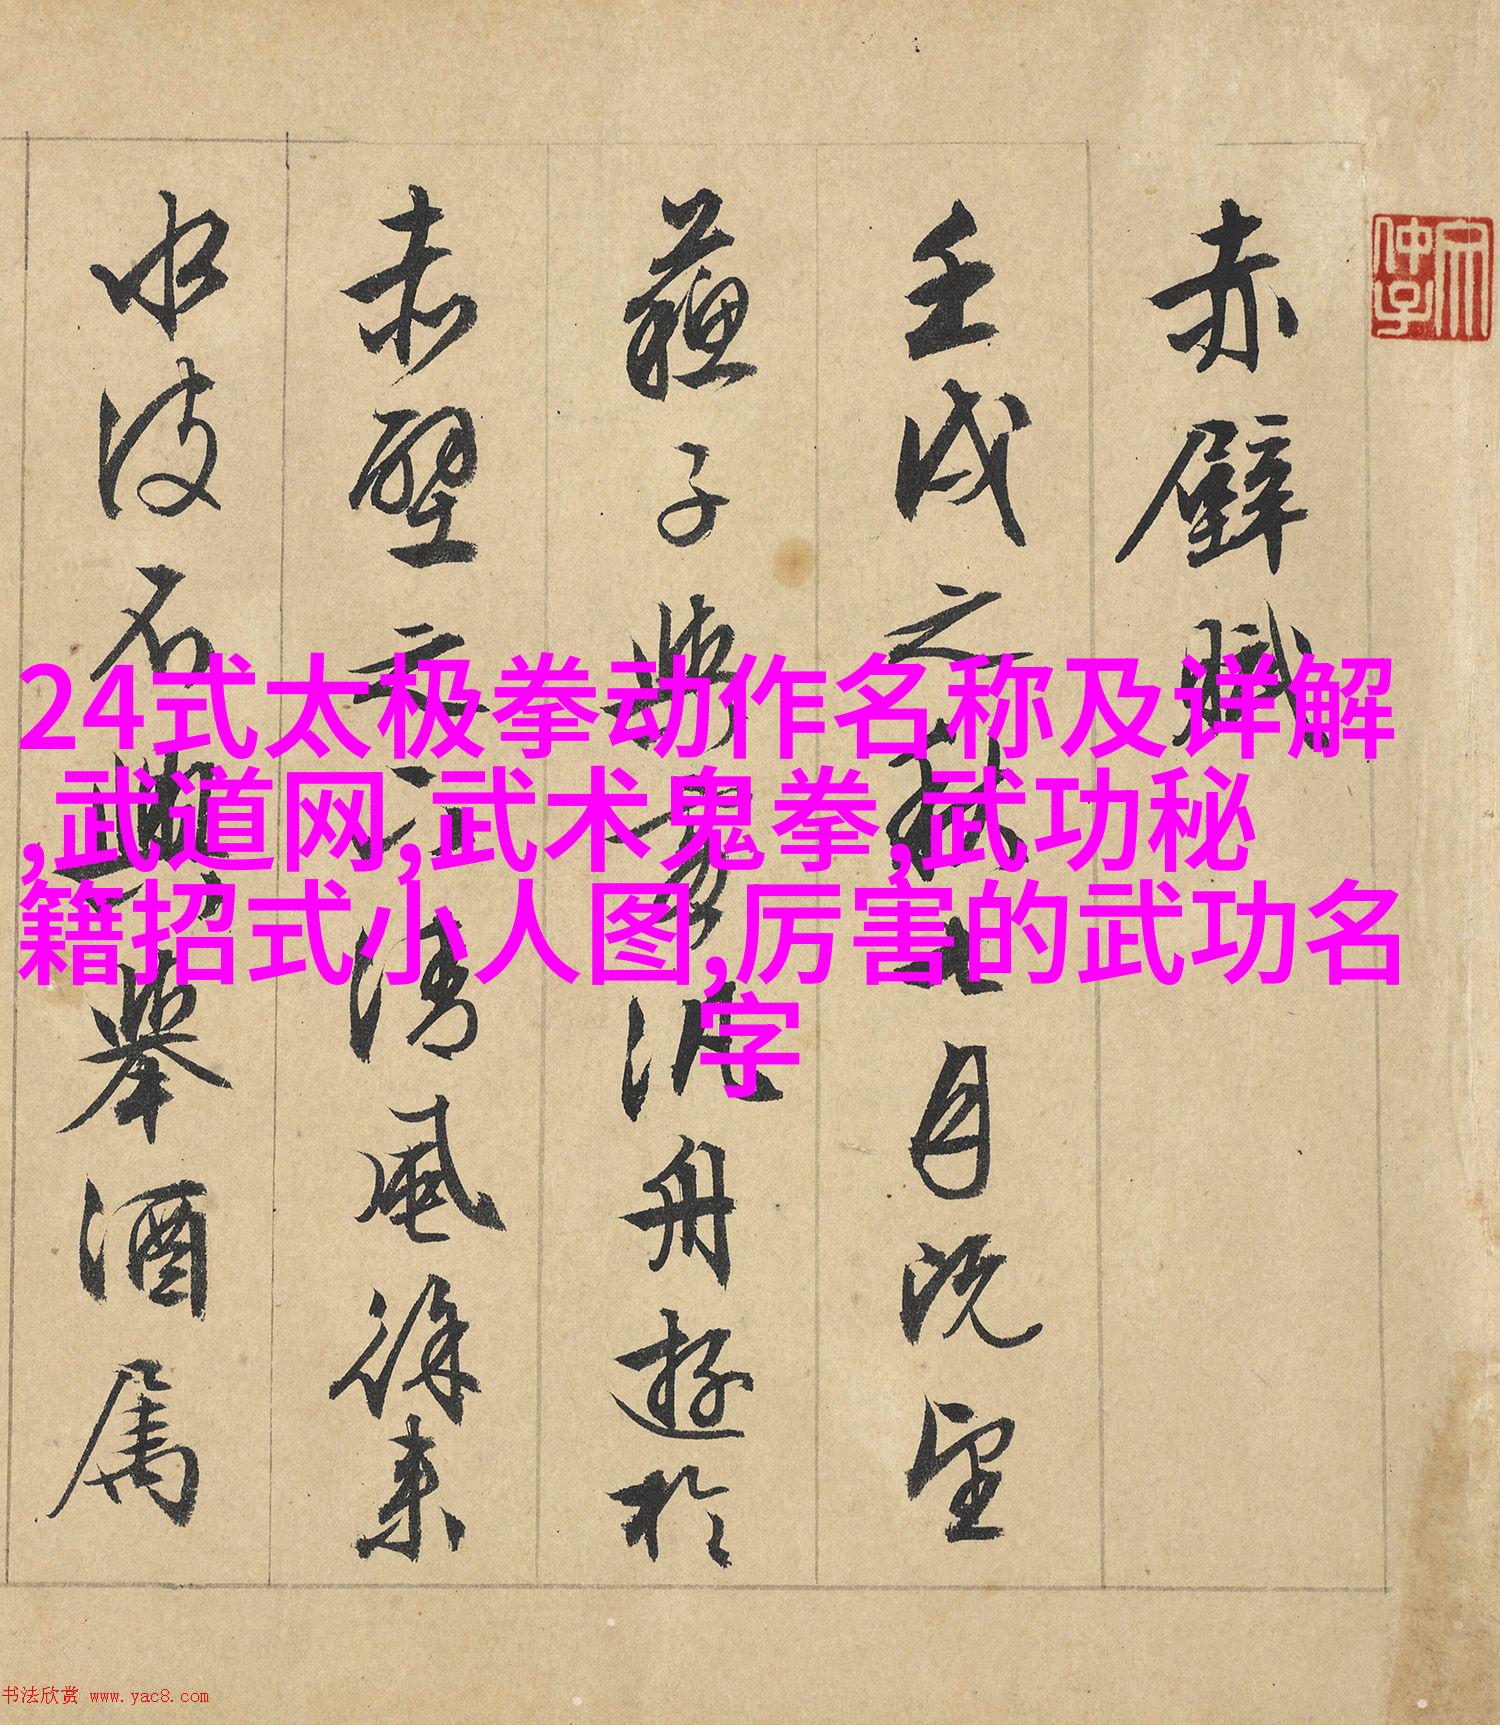 赤壁賦
壬戌之秋七月既望
蘇子與客泛舟遊於
赤壁之下清風徐來
水波不興舉酒屬
24式太极拳动作名称及详解
,武道网,武术鬼拳,武功秘
籍招式小人图,厉害的武功名
字
书法欣赏 www.yac8.com